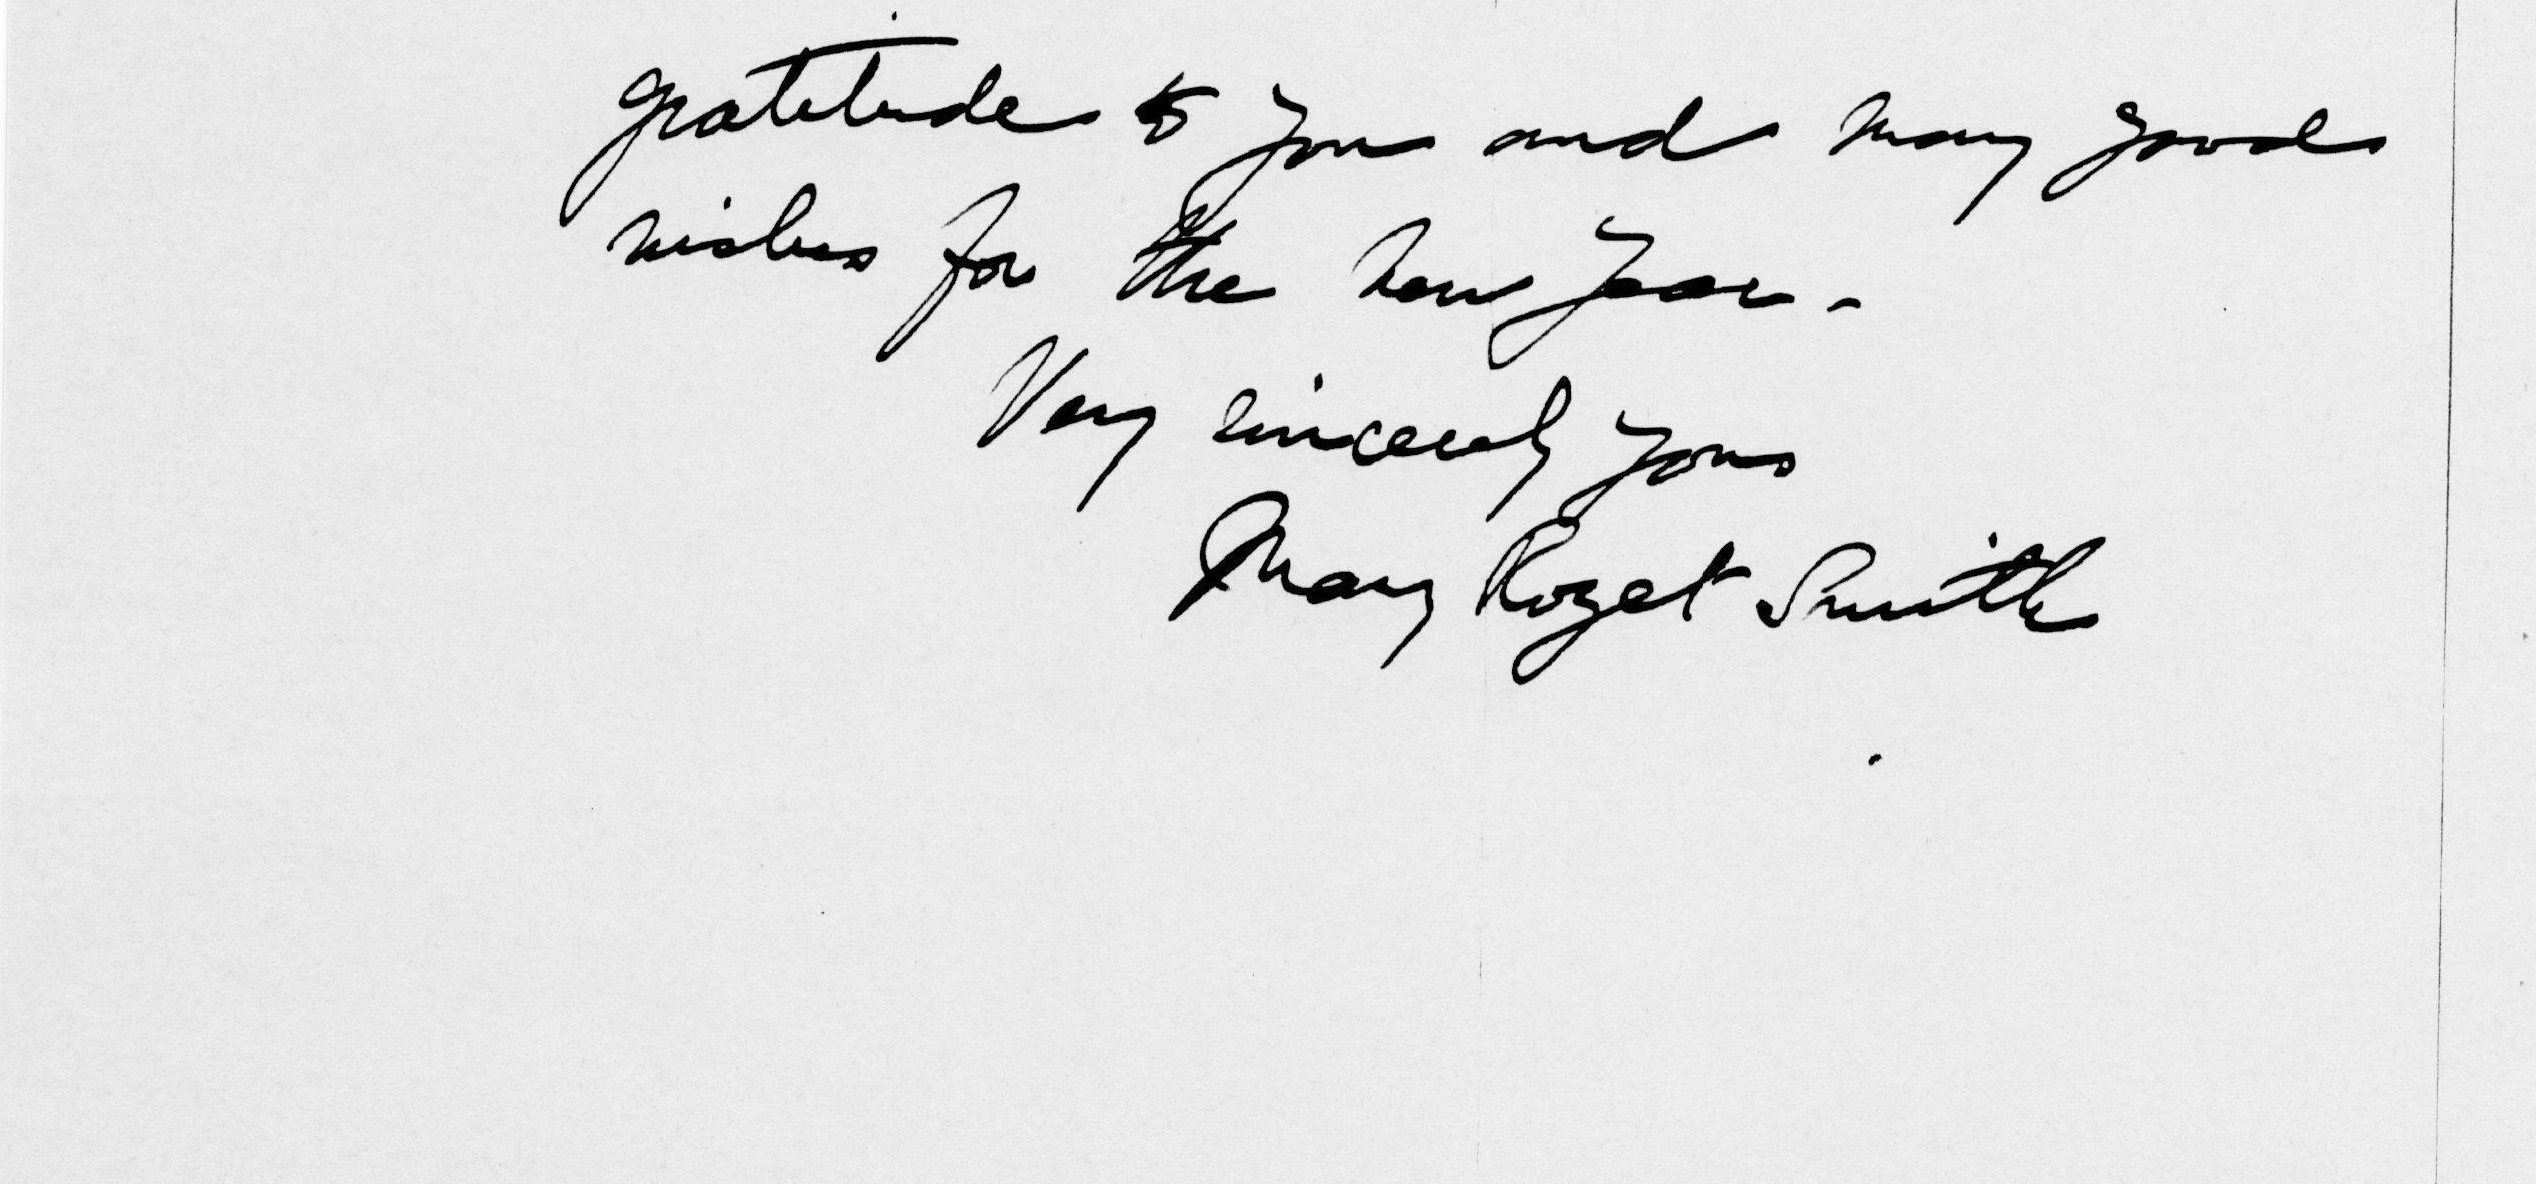 gratitude to you and many good
wishes for the new year -
Very sincerely yours
Mary Rozet Smith